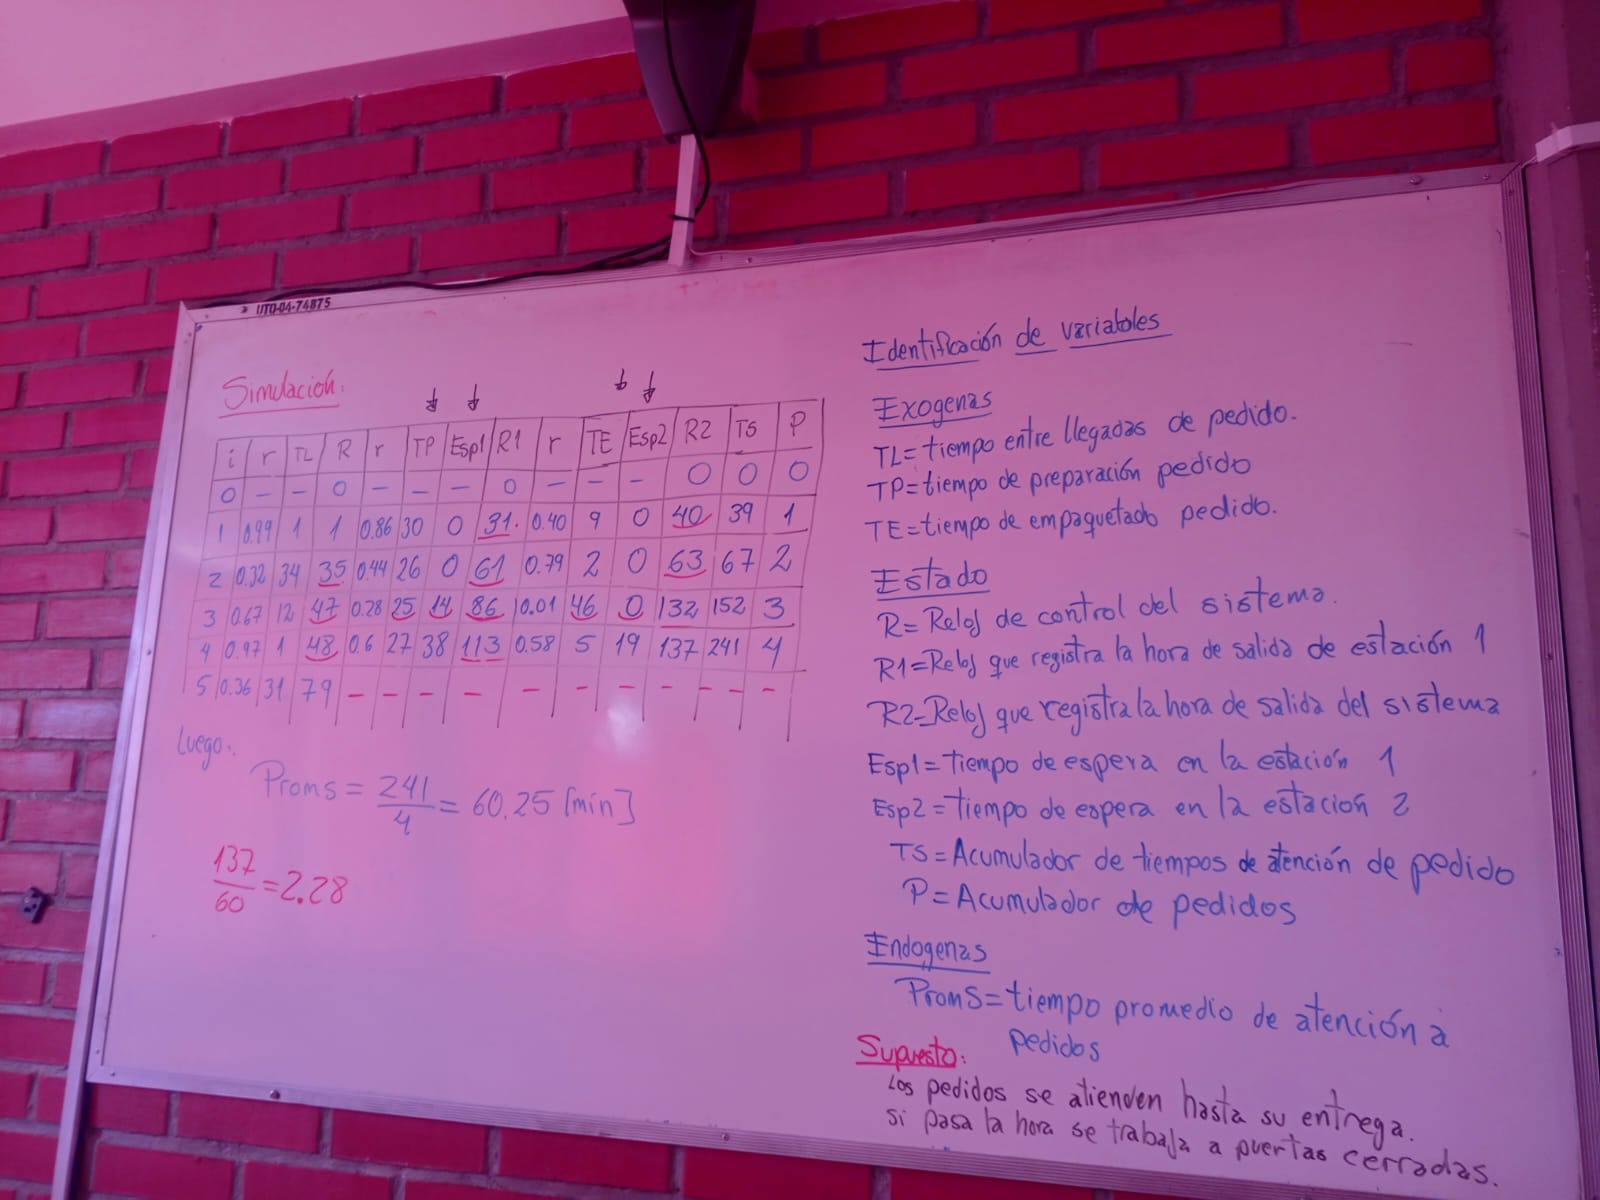 UTO-04-74875
Simulación:
i r TL R r TP Esp1 R1 r TE Esp2 R2 TS P
0 – – 0 – – – 0 – – – 0 0 0
1 0.99 1 1 0.86 30 0 31. 0.40 9 0 40 39 1
2 0.32 34 35 0.44 26 0 61 0.79 2 0 63 67 2
3 0.67 12 47 0.28 25 14 86 0.01 46 0 132 152 3
4 0.97 1 48 0.6 27 38 113 0.58 5 19 137 241 4
5 0.36 31 79 – – – – – – – – – –
Luego:
Proms = 241/4 = 60.25 [min]
137/60 = 2.28
Identificación de variables
Exogenas
TL= tiempo entre llegadas de pedido.
TP= tiempo de preparación pedido
TE= tiempo de empaquetado pedido.
Estado
R= Reloj de control del sistema.
R1= Reloj que registra la hora de salida de estación 1
R2= Reloj que registra la hora de salida del sistema
Esp1= tiempo de espera en la estación 1
Esp2= tiempo de espera en la estacion 2
TS= Acumulador de tiempos de atención de pedido
P= Acumulador de pedidos
Endogenas
PromS= tiempo promedio de atención a
pedidos
Supuesto:
Los pedidos se atienden hasta su entrega.
si pasa la hora se trabaja a puertas cerradas.